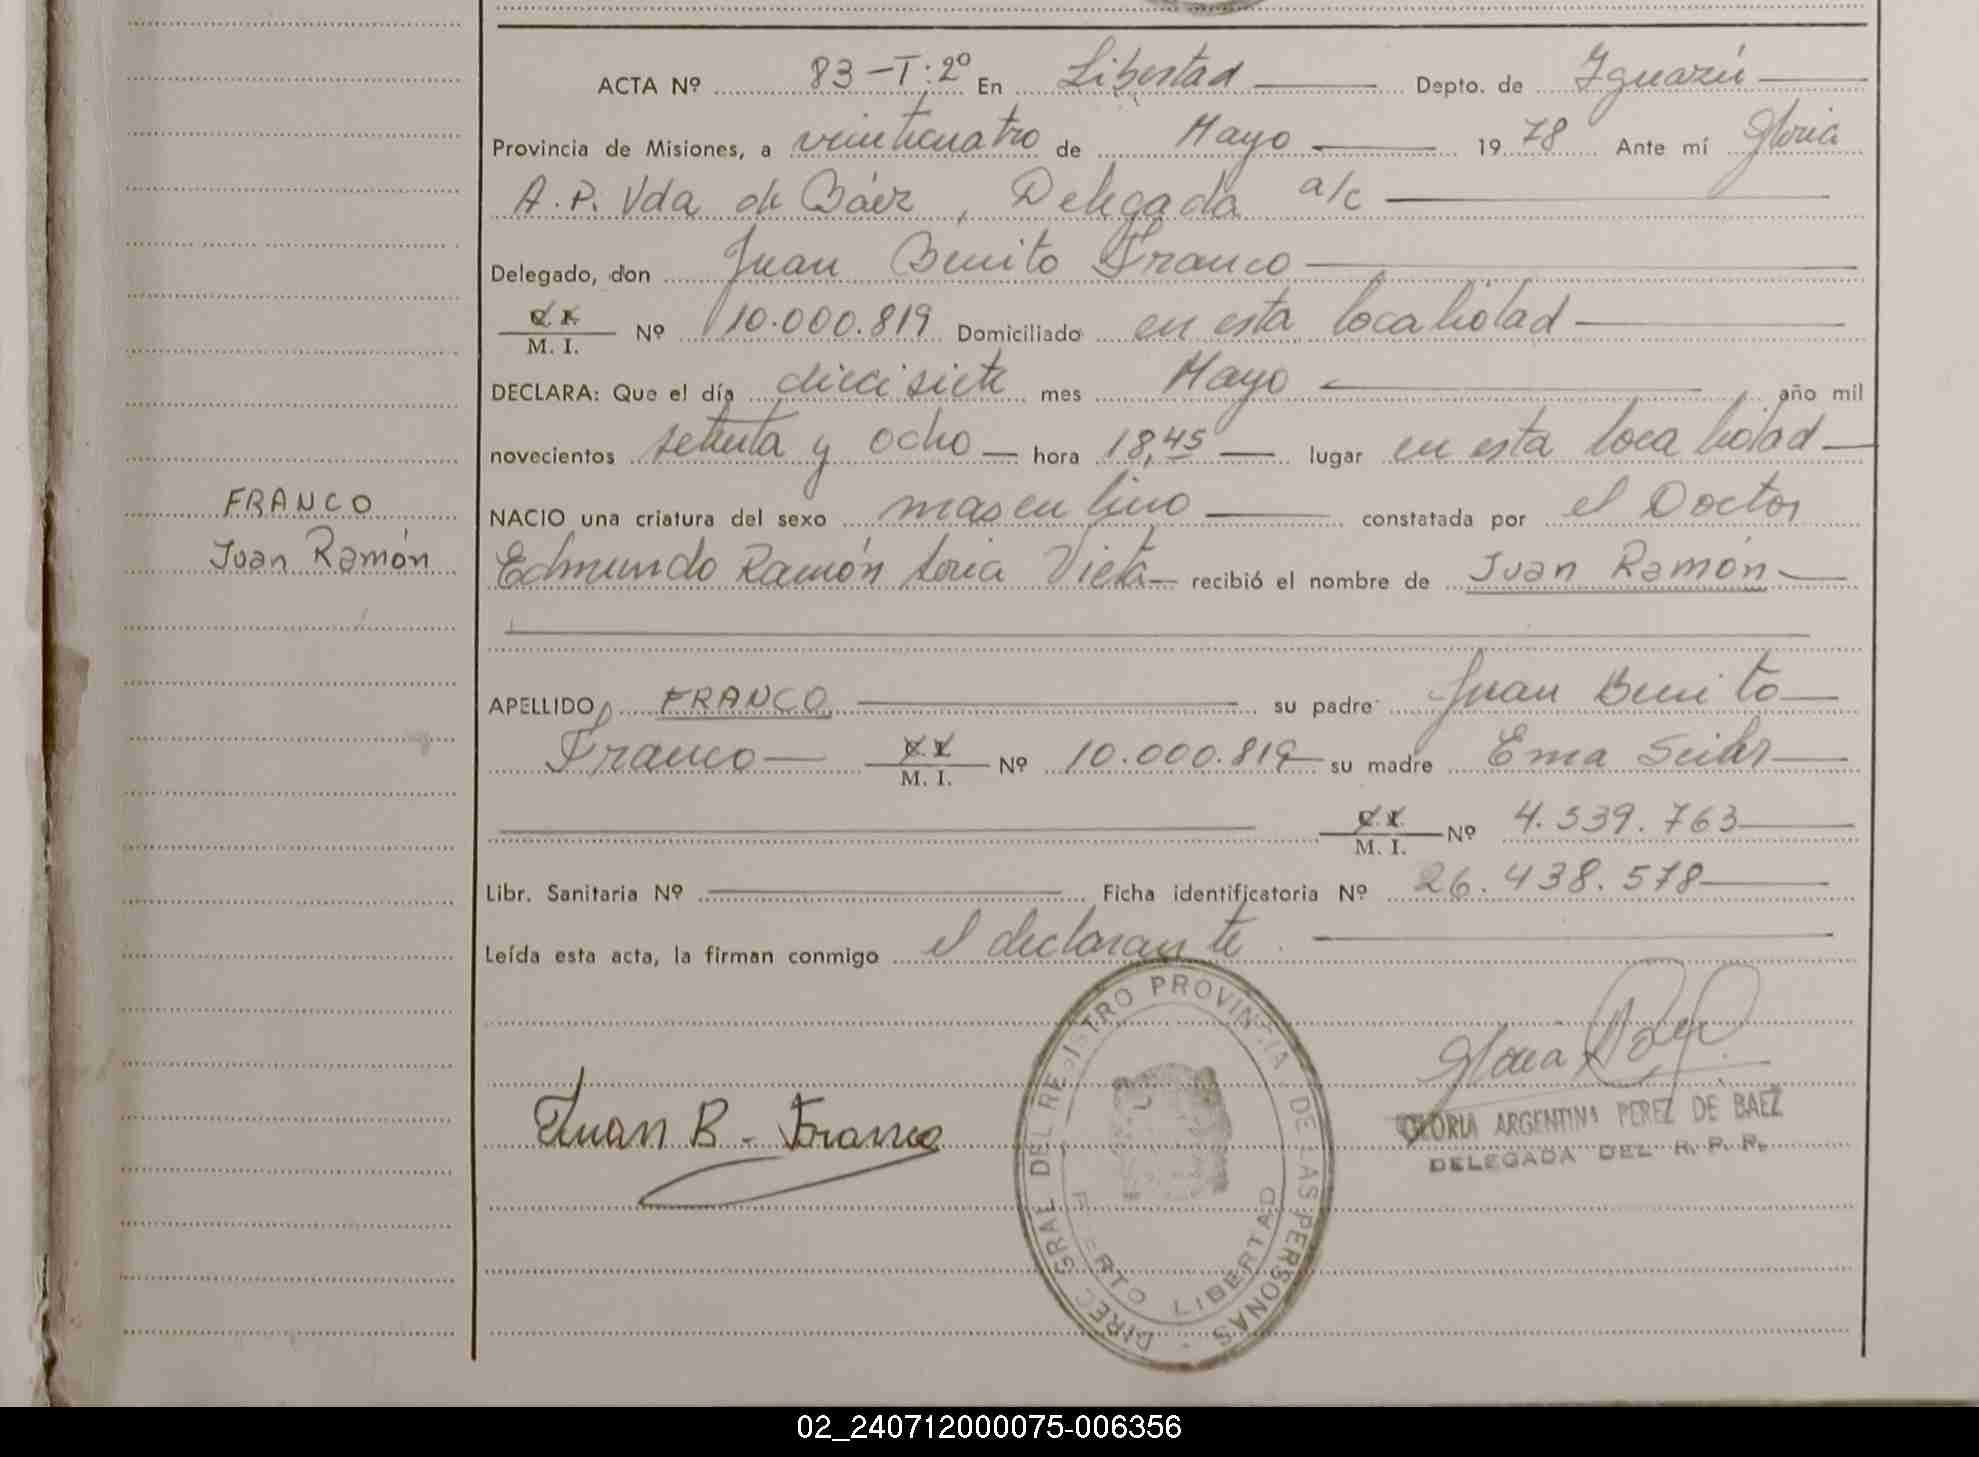 ACTA Nº 83-T:2º En Libertad Depto. de Iguazú
Provincia de Misiones, a veinticuatro de Mayo 19 78 Ante mí Gloria
A.P. Vda de Báez, Delegada a/c
Delegado, don Juan Benito Franco
M. I. Nº 10.000.819 Domiciliado en esta localidad
DECLARA: Que el día diecisiete mes Mayo año mil
novecientos setenta y ocho hora 18,45 lugar en esta localidad
FRANCO
Juan Ramón
NACIO una criatura del sexo masculino constatada por el Doctor
Edmundo Ramón Soria Vieta recibió el nombre de Juan Ramón
APELLIDO FRANCO su padre Juan Benito
Franco M. I. Nº 10.000.819 su madre Ema
M. I. Nº 4.539.763
Libr. Sanitaria Nº Ficha identificatoria Nº 26.438.578
Leída esta acta, la firman conmigo el declarante.
Juan B. Franco
DIREC GRAL DEL REGISTRO PROVINCIAL DE LAS PERSONAS
PUERTO LIBERTAD
GLORIA ARGENTINA PEREZ DE BAEZ
DELEGADA DEL R. P. P.
02_240712000075-006356